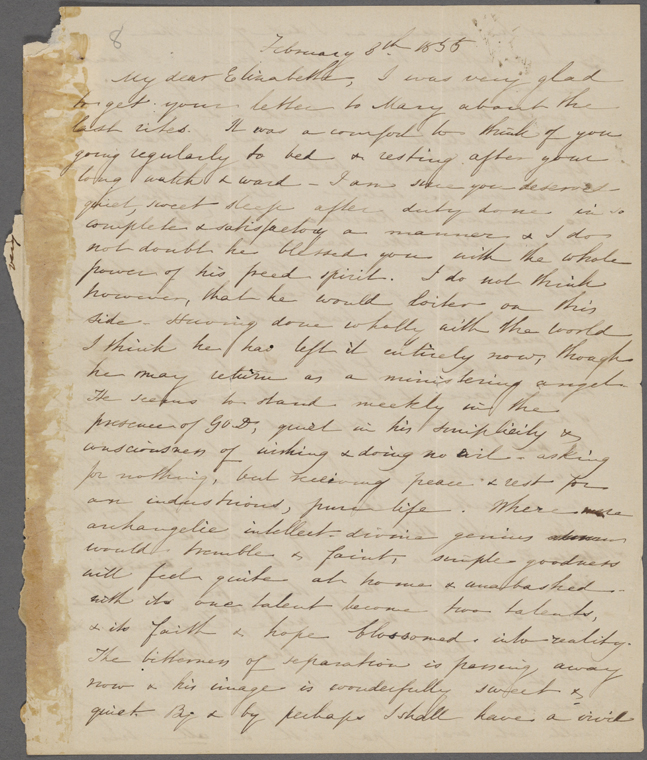 8
February 8th 1855
My dear Elizabeth, I was very glad
to get your letter to Mary about the
last rites. It was a comfort to think of you
going regularly to bed & resting after your
long watch & ward - I am sure you deserve
quiet, sweet sleep after duty done in so
complete & satisfactory a manner & I do
not doubt he blessed you with the whole
power of his freed spirit. I do not think
however, that he would loiter on this
side - Having done wholly with the world
I think he has left it entirely now, though
he may return as a ministering angel.
He seems to stand meekly in the
presence of GOD, quiet in his simplicity &
consciousness of wishing & doing no evil - asking
for nothing, but receiving peace & rest for
an industrious, pure life. Where mere
archangelic intellect - divine genius
would tremble & faint, simple goodness
will feel quite at home & unabashed -
with its one talent become two talents,
& its faith & hope blossomed into reality.
The bitterness of separation is passing away
now & his image is wonderfully sweet &
quiet. By & by perhaps I shall have a vivid